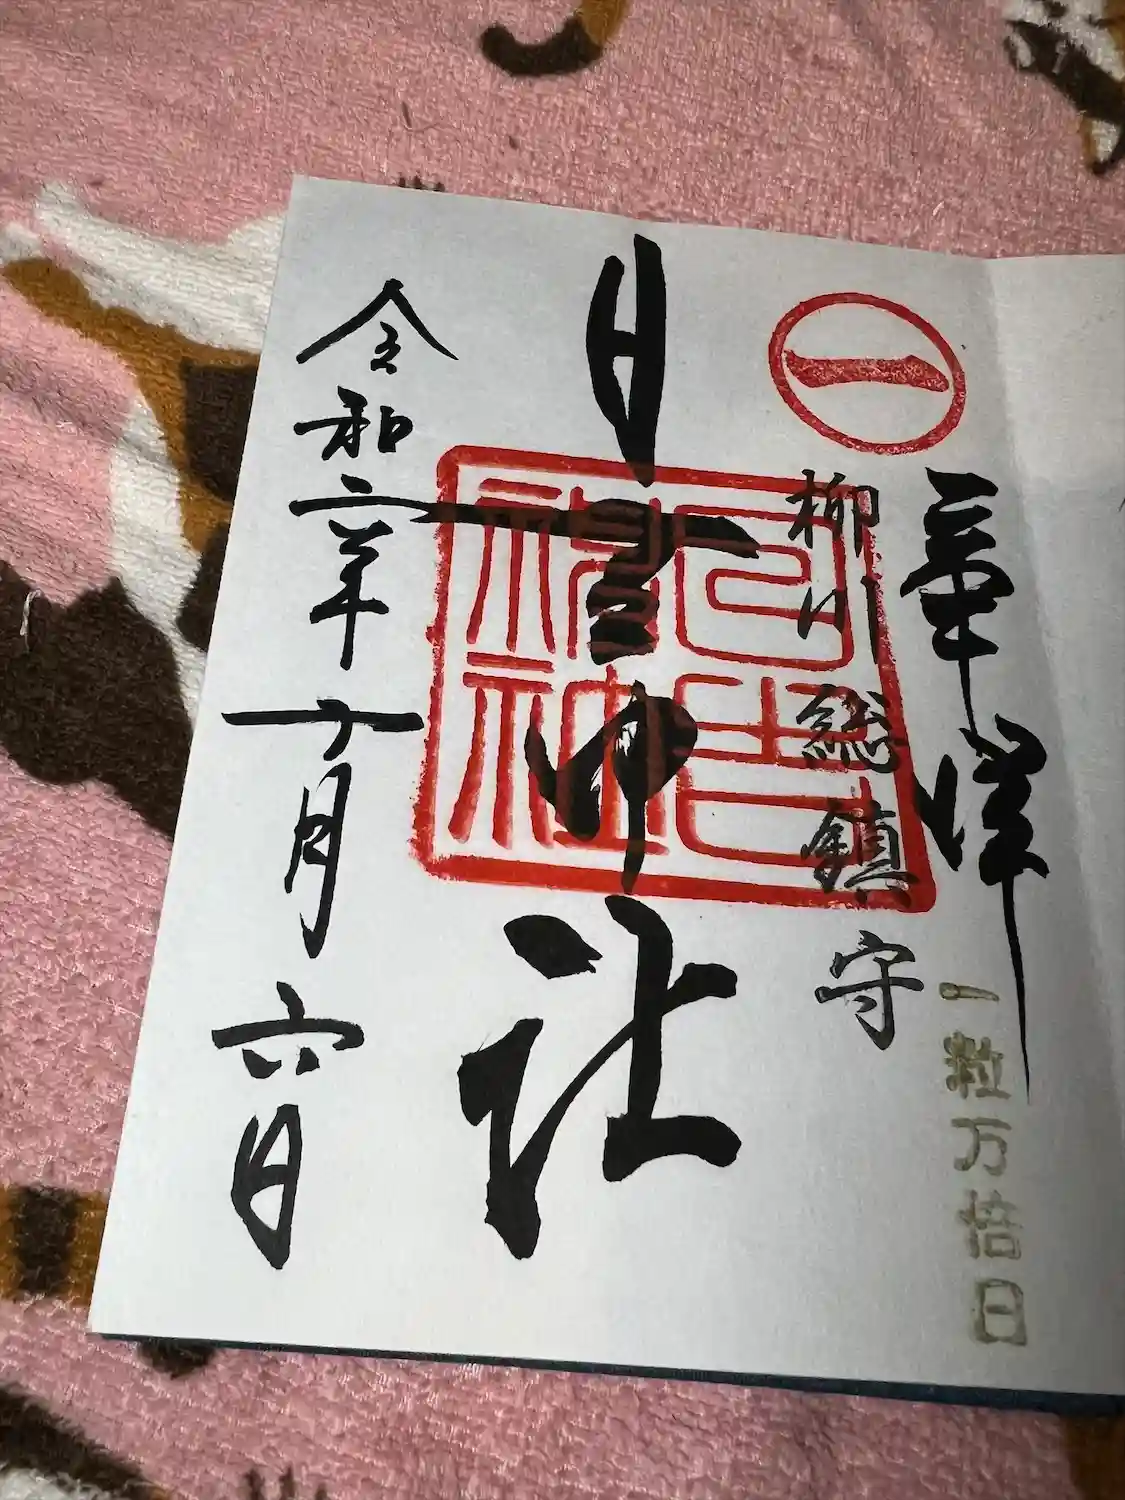 一
奉拝
一粒万倍日
柳川総鎮守
日吉神社
日吉神社
令和六年十月六日